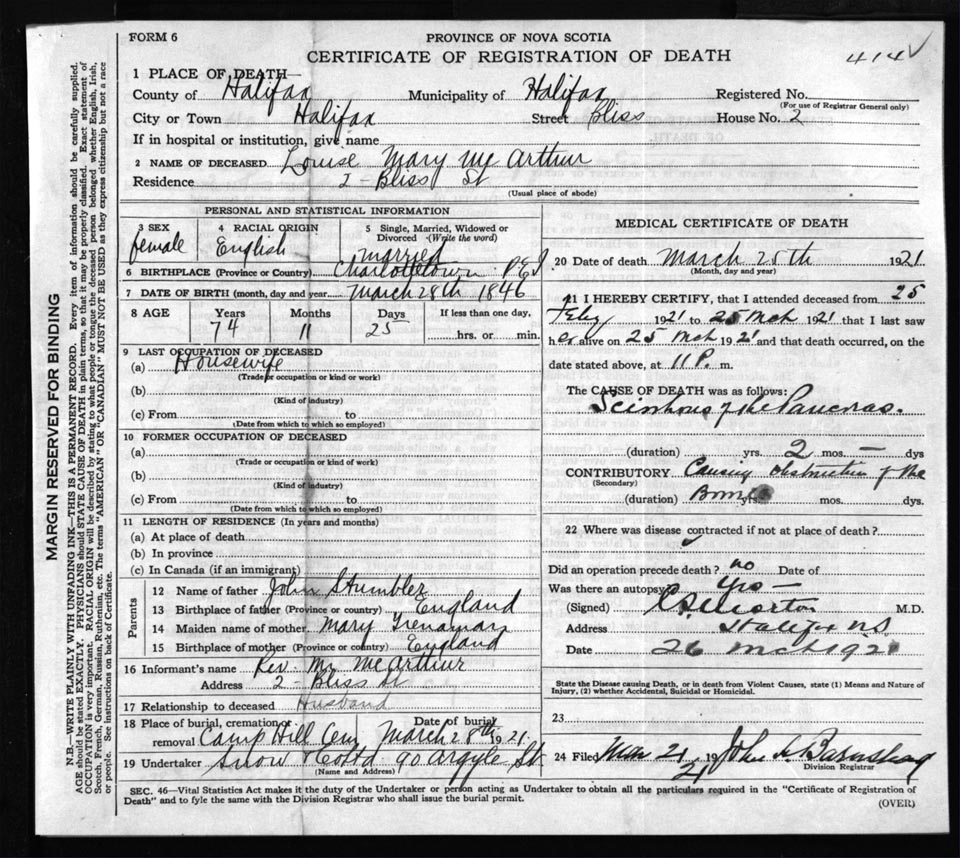 FORM 6
PROVINCE OF NOVA SCOTIA
CERTIFICATE OF REGISTRATION OF DEATH
414
1 PLACE OF DEATH—
County of Halifax Municipality of Halifax Registered No.
(For use of Registrar General only)
City or Town Halifax Street Bliss House No. 2
If in hospital or institution, give name
2 NAME OF DECEASED Louise Mary McArthur
Residence 2 - Bliss St
(Usual place of abode)
PERSONAL AND STATISTICAL INFORMATION
3 SEX female
4 RACIAL ORIGIN English
5 Single, Married, Widowed or Divorced (Write the word) married
6 BIRTHPLACE (Province or Country) Charlottetown P.E.I.
7 DATE OF BIRTH (month, day and year) March 28th 1846
8 AGE Years Months Days If less than one day,
74 11 25 hrs. or min.
9 LAST OCCUPATION OF DECEASED
(a) Housewife
(Trade or occupation or kind or work)
(b)
(Kind of industry)
(c) From to
(Date from which to which so employed)
10 FORMER OCCUPATION OF DECEASED
(a)
(Trade or occupation or kind of work)
(b)
(Kind of industry)
(c) From to
(Date from which to which so employed)
11 LENGTH OF RESIDENCE (In years and months)
(a) At place of death
(b) In province
(c) In Canada (if an immigrant)
Parents
12 Name of father John Stumbler
13 Birthplace of father (Province or country) England
14 Maiden name of mother Mary Trenaman
15 Birthplace of mother (Province or country) England
16 Informant's name Rev. Mr. McArthur
Address 2 - Bliss St
17 Relationship to deceased Husband
18 Place of burial, cremation or removal Camp Hill Cem Date of burial March 28th 1921
19 Undertaker Snow & Co Ltd 90 Argyle St.
(Name and Address)
MEDICAL CERTIFICATE OF DEATH
20 Date of death March 25th 1921
(Month, day and year)
21 I HEREBY CERTIFY, that I attended deceased from 25
Feby 1921 to 25 Mch 1921 that I last saw
her alive on 25 Mch 1921 and that death occurred, on the
date stated above, at 11 P. m.
The CAUSE OF DEATH was as follows:
Scirrhous of the Pancreas.
(duration) yrs. 2 mos. — dys
CONTRIBUTORY Causing obstruction of the
(Secondary)
(duration) yrs. mos. dys.
22 Where was disease contracted if not at place of death?
Did an operation precede death? no Date of
Was there an autopsy? Yes —
(Signed) Morton M.D.
Address Halifax NS
Date 26 Mch 1921
State the Disease causing Death, or in death from Violent Causes, state (1) Means and Nature of
Injury, (2) whether Accidental, Suicidal or Homicidal.
23
24 Filed 19 John
Division Registrar
SEC. 46—Vital Statistics Act makes it the duty of the Undertaker or person acting as Undertaker to obtain all the particulars required in the "Certificate of Registration of
Death" and to fyle the same with the Division Registrar who shall issue the burial permit.
(OVER)
MARGIN RESERVED FOR BINDING
N.B.—WRITE PLAINLY WITH UNFADING INK—THIS IS A PERMANENT RECORD. Every item of information should be carefully supplied.
AGE should be stated EXACTLY. PHYSICIANS should STATE CAUSE OF DEATH in plain terms, so that it may be properly classified. Exact statement of
OCCUPATION is very important. RACIAL ORIGIN will be described by stating to what people or tongue the deceased person belonged whether English, Irish,
Scotch, French, German, Russian, Ruthenian, etc. The terms "AMERICAN" OR "CANADIAN" MUST NOT BE USED as they express citizenship but not a race
or people. See instructions on back of Certificate.